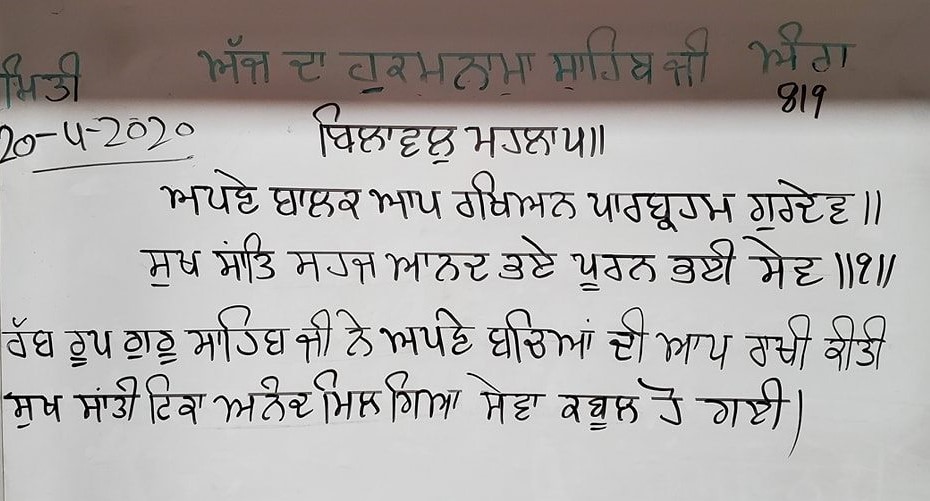 ਅੱਜ ਦਾ ਹੁਕਮਨਾਮਾ ਸਾਹਿਬ ਜੀ ਅੰਗ
ਮਿਤੀ 819
20-4-2020 ਬਿਲਾਵਲੁ ਮਹਲਾ ੫॥
ਅਪਣੇ ਬਾਲਕ ਆਪ ਰਖਿਅਨ ਪਾਰਬ੍ਰਹਮ ਗੁਰਦੇਵ॥
ਸੁਖ ਸਾਂਤਿ ਸਹਜ ਆਨਦ ਭਏ ਪੂਰਨ ਭਈ ਸੇਵ॥੧॥
ਰੱਬ ਰੂਪ ਗੁਰੂ ਸਾਹਿਬ ਜੀ ਨੇ ਅਪਣੇ ਬਚਿਆਂ ਦੀ ਆਪ ਰਾਖੀ ਕੀਤੀ
ਸੁਖ ਸਾਂਤੀ ਟਿਕਾ ਅਨੰਦ ਮਿਲ ਗਿਆ ਸੇਵਾ ਕਬੂਲ ਹੋ ਗਈ।